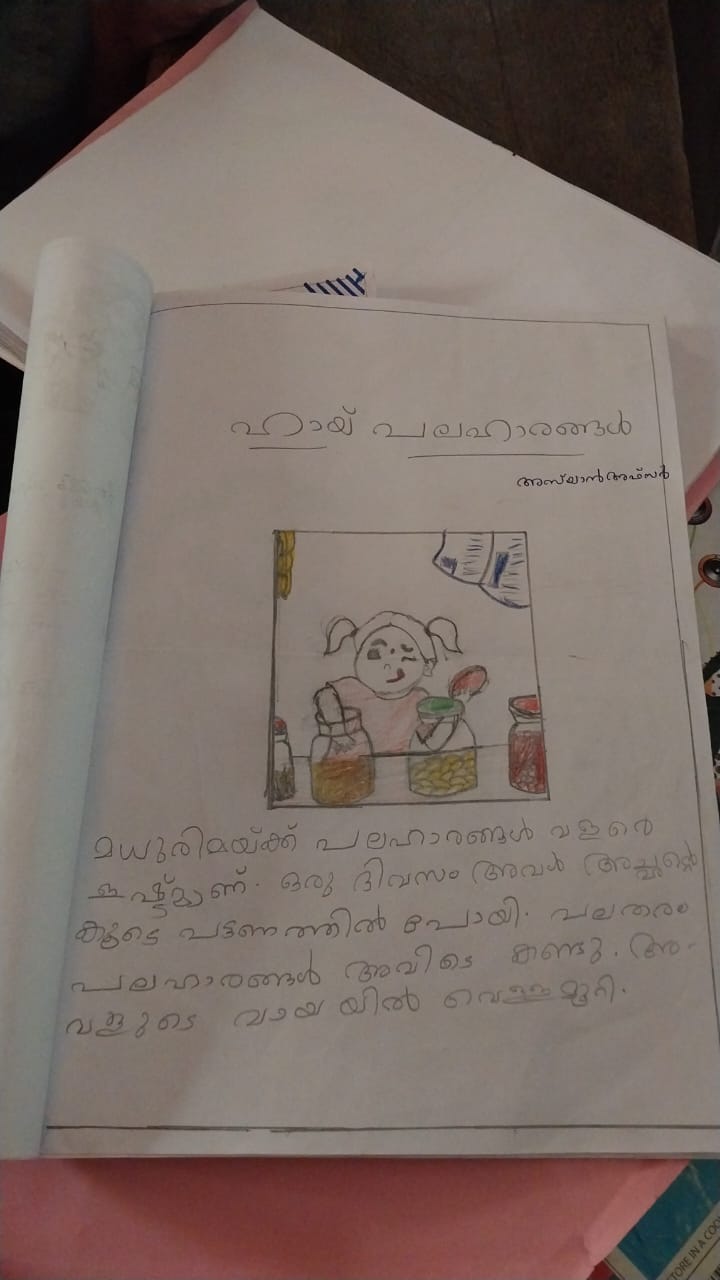 ഹായ് പലഹാരങ്ങൾ
അസ്‌യാൻ അഫ്സർ
മധുരിമയ്ക്ക് പലഹാരങ്ങൾ വളരെ
ഇഷ്ട്മാണ്. ഒരു ദിവസം അവൾ അച്ഛൻ്റെ
കൂടെ പട്ടണത്തിൽ പോയി. പലതരം
പലഹാരങ്ങൾ അവിടെ കണ്ടു. അ-
വളുടെ വായയിൽ വെള്ളമൂറി.
TORE IN A COO